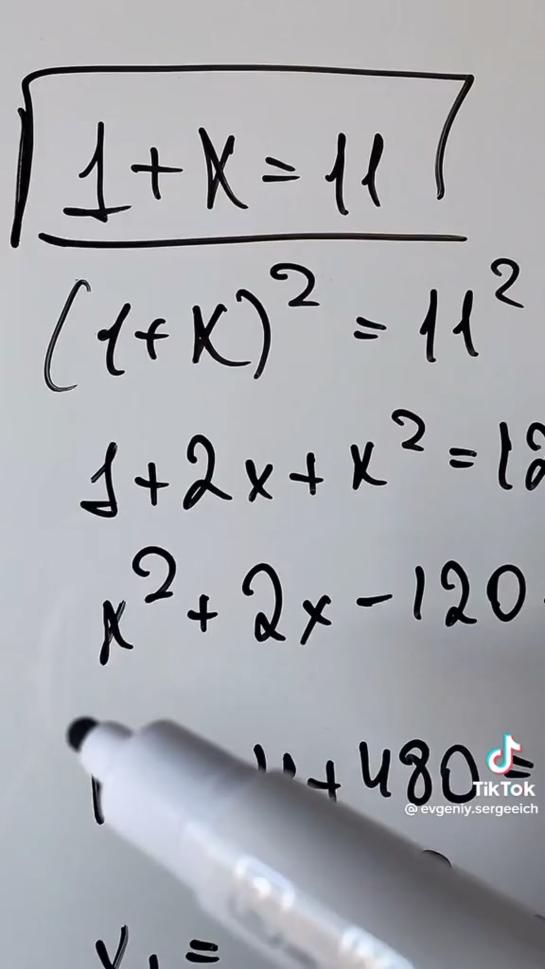 1 + x = 11
(1 + x)² = 11²
1 + 2x + x² = 12
x² + 2x - 120
4 + 480 =
TikTok
@evgeniy.sergeeich
x₁ =